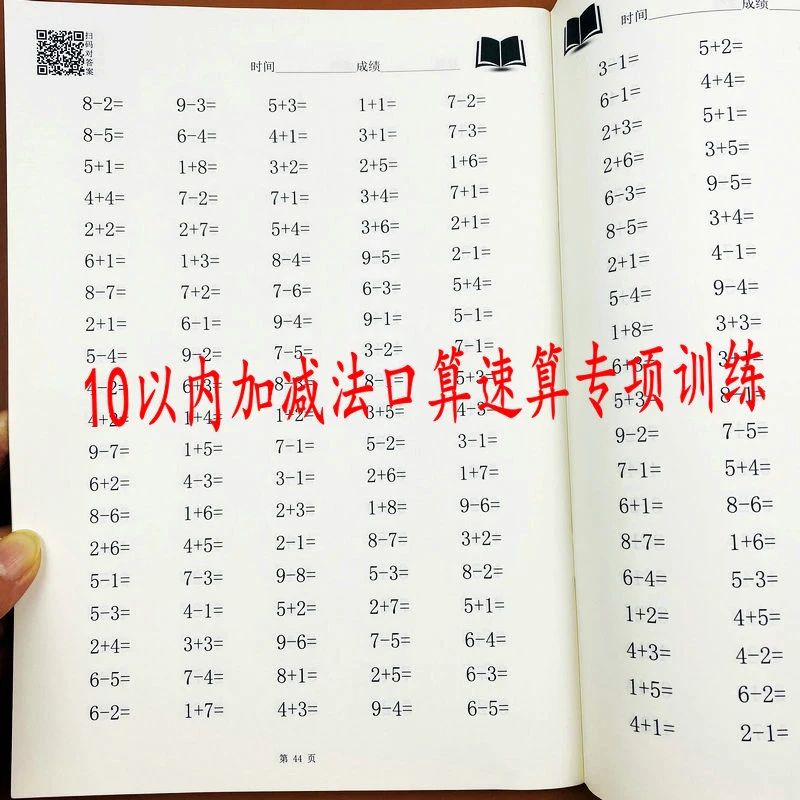 扫码对答案
时间 成绩
8-2= 9-3= 5+3= 1+1= 7-2=
8-5= 6-4= 4+1= 3+1= 7-3=
5+1= 1+8= 3+2= 2+5= 1+6=
4+4= 7-2= 7+1= 3+4= 7+1=
2+2= 2+7= 5+4= 3+6= 2+1=
6+1= 1+3= 8-4= 9-5= 2-1=
8-7= 7+2= 7-6= 6-3= 5+4=
2+1= 6-1= 9-4= 9-1= 5-1=
5-4= 9-2= 7-5= 3-2= 7-1=
10以内加减法口算速算专项训练
4+2= 1+4= 1+2= 3+5= 4-3=
9-7= 1+5= 7-1= 5-2= 3-1=
6+2= 4-3= 3-1= 2+6= 1+7=
8-6= 1+6= 2+3= 1+8= 9-6=
2+6= 4+5= 2-1= 8-7= 3+2=
5-1= 7-3= 9-8= 5-3= 8-2=
5-3= 4-1= 5+2= 2+7= 5+1=
2+4= 3+3= 9-6= 7-5= 6-4=
6-5= 7-4= 8+1= 2+5= 6-3=
6-2= 1+7= 4+3= 9-4= 6-5=
第 44 页
时间 成绩
3-1= 5+2=
6-1= 4+4=
2+3= 5+1=
2+6= 3+5=
6-3= 9-5=
8-5= 3+4=
2+1= 4-1=
5-4= 9-4=
1+8= 3+3=
6+3=
5+3= 8-1=
9-2= 7-5=
7-1= 5+4=
6+1= 8-6=
8-7= 1+6=
6-4= 5-3=
1+2= 4+5=
4+3= 4-2=
1+5= 6-2=
4+1= 2-1=